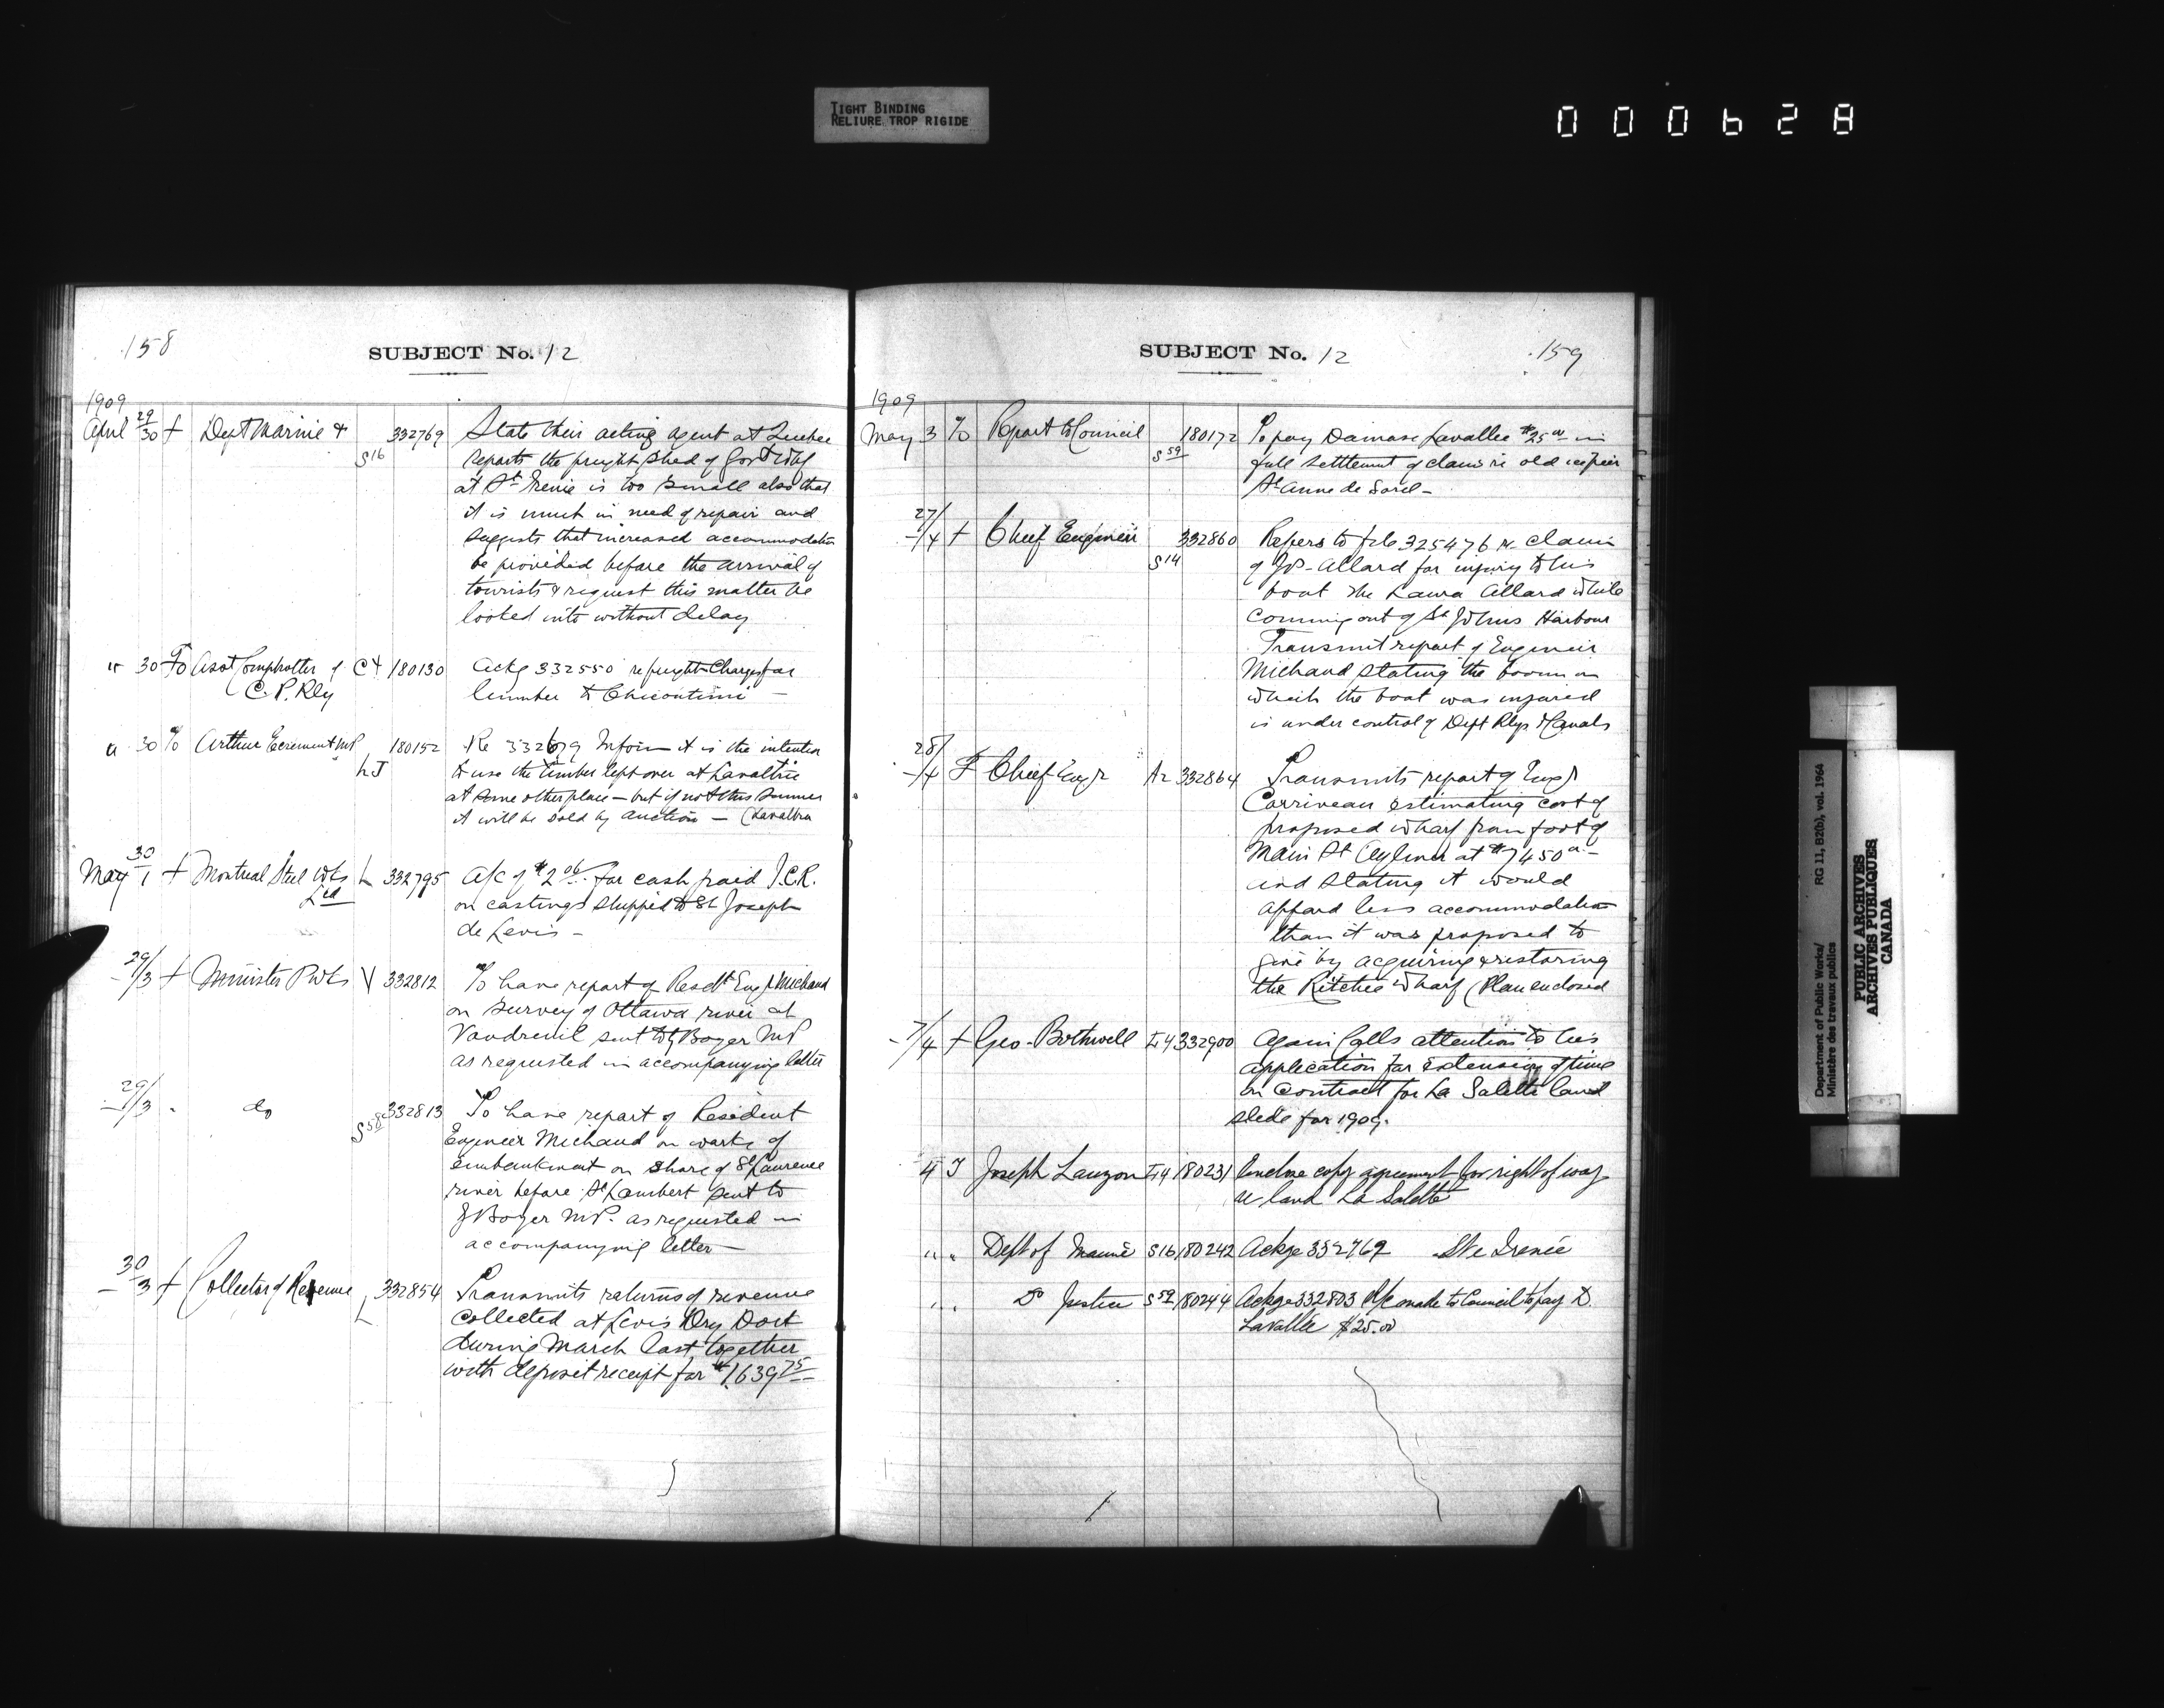 TIGHT BINDING
RELIURE TROP RIGIDE
000628
158
SUBJECT No. 12
1909
April 29/30 + Dept Marine & S16 332769 State their acting agent at Quebec
reports the freight shed of Govt Whf
at St Irenie is too small also that
it is much in need of repair and
suggests that increased accommodation
be provided before the arrival of
tourists & request this matter be
looked into without delay
" 30 To Asst Comptroller of C+ 180130 Ackg 332550 re freight charges for
C. P. Rly lumber to Chicoutimi —
" 30 To Arthur Ecrement MP LJ 180152 Re 332679 Inform it is the intention
to use the timber left over at Lavaltrie
at some other place — but if not this summer
it will be sold by auction — (Lavaltrie
May 30/1 + Montreal Steel Wks L 332795 A/c of $2.06 for cash paid I.C.R.
Ltd on castings shipped to St Joseph
de Levis —
29/3 + Minister P Wks V 332812 To have report of Resdt Engr Michaud
on survey of Ottawa river at
Vaudreuil sent to Boyer MP
as requested in accompanying letter
29/3 " do S58 332813 To have report of Resident
Engineer Michaud on works of
embankment on shore of St Laurence
river before St Lambert sent to
Boyer M.P. as requested in
accompanying letter —
30/3 + Collector of Revenue L 332854 Transmits returns of revenue
collected at Levis Dry Dock
during March last together
with deposit receipt for $1,639.75
SUBJECT No. 12
159
1909
May 3 To Report to Council S59 180172 To pay Damase Lavallee $25.00 in
full settlement of claim re old
St Anne de Sorel —
27/4 + Chief Engineer S14 332860 Refers to file 325476 re claim
of Allard for injury to his
boat the Laura Allard while
coming out of St Johns Harbour
Transmit report of Engineer
Michaud stating the boom on
which the boat was injured
is under control of Dept Rlys & Canals
28/4 F Chief Engr A2 332864 Transmits report of Engr
Corriveau estimating cost of
proposed wharf from foot of
Main St Aylmer at $7450.00 —
and stating it would
afford less accommodation
than it was proposed to
give by acquiring & restoring
the Ritchie wharf (Plan enclosed
7/4 + Geo. Bothwell L4 332900 Again Calls attention to his
application for extension of time
on contract for La Salette land
slide for 1909.
4 T Joseph Lauzon L4 180231 Enclose copy agreement for right of way
re land La Salette
" " Dept of Marine S16 180242 Ackge 332769 Ste Irenée
" " Do Justice S59 180244 Ackge 332803 made to Council to pay D.
Lavallée $25.00
Department of Public Works/ RG 11, B2(b), vol. 1964
Ministère des travaux publics
PUBLIC ARCHIVES
ARCHIVES PUBLIQUES
CANADA